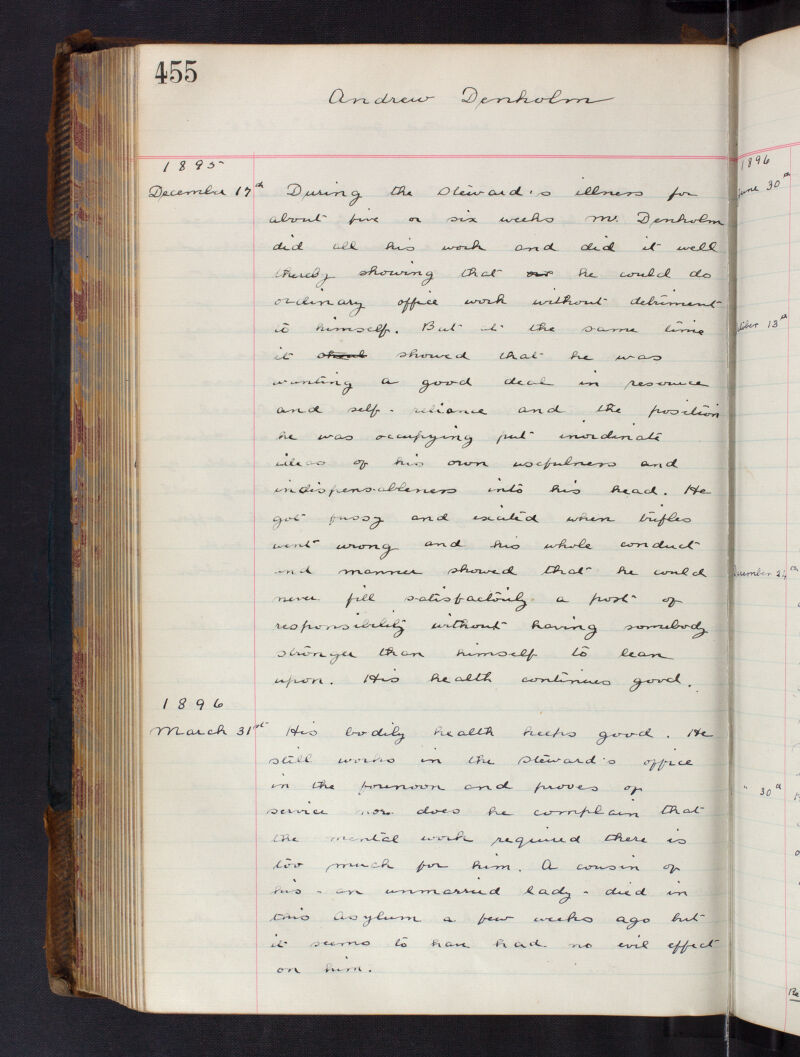 455
Andrew Denholm
1895
December 17th During the Steward's illness for
about five or six weeks Mr. Denholm
did all his work and did it well
thereby showing that he could do
ordinary office work without detriment
to himself. But at the same time
it showed that he was
wanting a good deal in resource
and self-reliance and the position
he was occupying put inordinate
ideas of his own usefulness and
indispensableness into his head. He
got fussy and excited when trifles
went wrong and his whole conduct
and manner showed that he could
never fill satisfactorily a post of
responsibility without having somebody
stronger than himself to lean
upon. His health continues good.
1896
March 31st His bodily health keeps good. He
still works in the Steward's office
in the forenoon and proves of
service nor does he complain that
the mental work required there is
too much for him. A cousin of
his - an unmarried lady - died in
this Asylum a few weeks ago but
it seems to have had no evil effect
on him.
1896
June 30th
October 13th
December 24th
" 30th